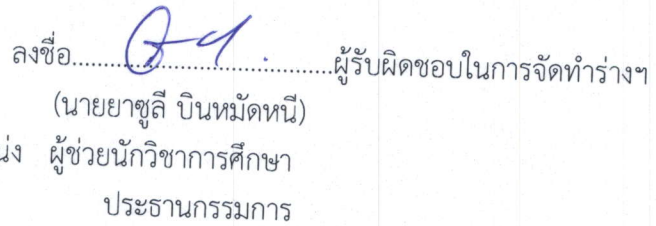 ลงชื่อ................................ผู้รับผิดชอบในการจัดทำร่างฯ
(นายยาซูลี บินหมัดหนี)
น่ง ผู้ช่วยนักวิชาการศึกษา
ประธานกรรมการ